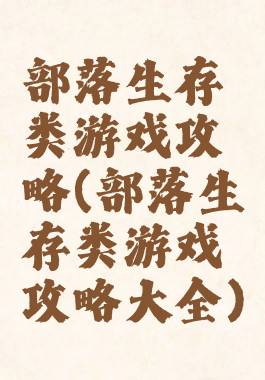 部落生存
类游戏攻
略(部落生
存类游戏
攻略大全)